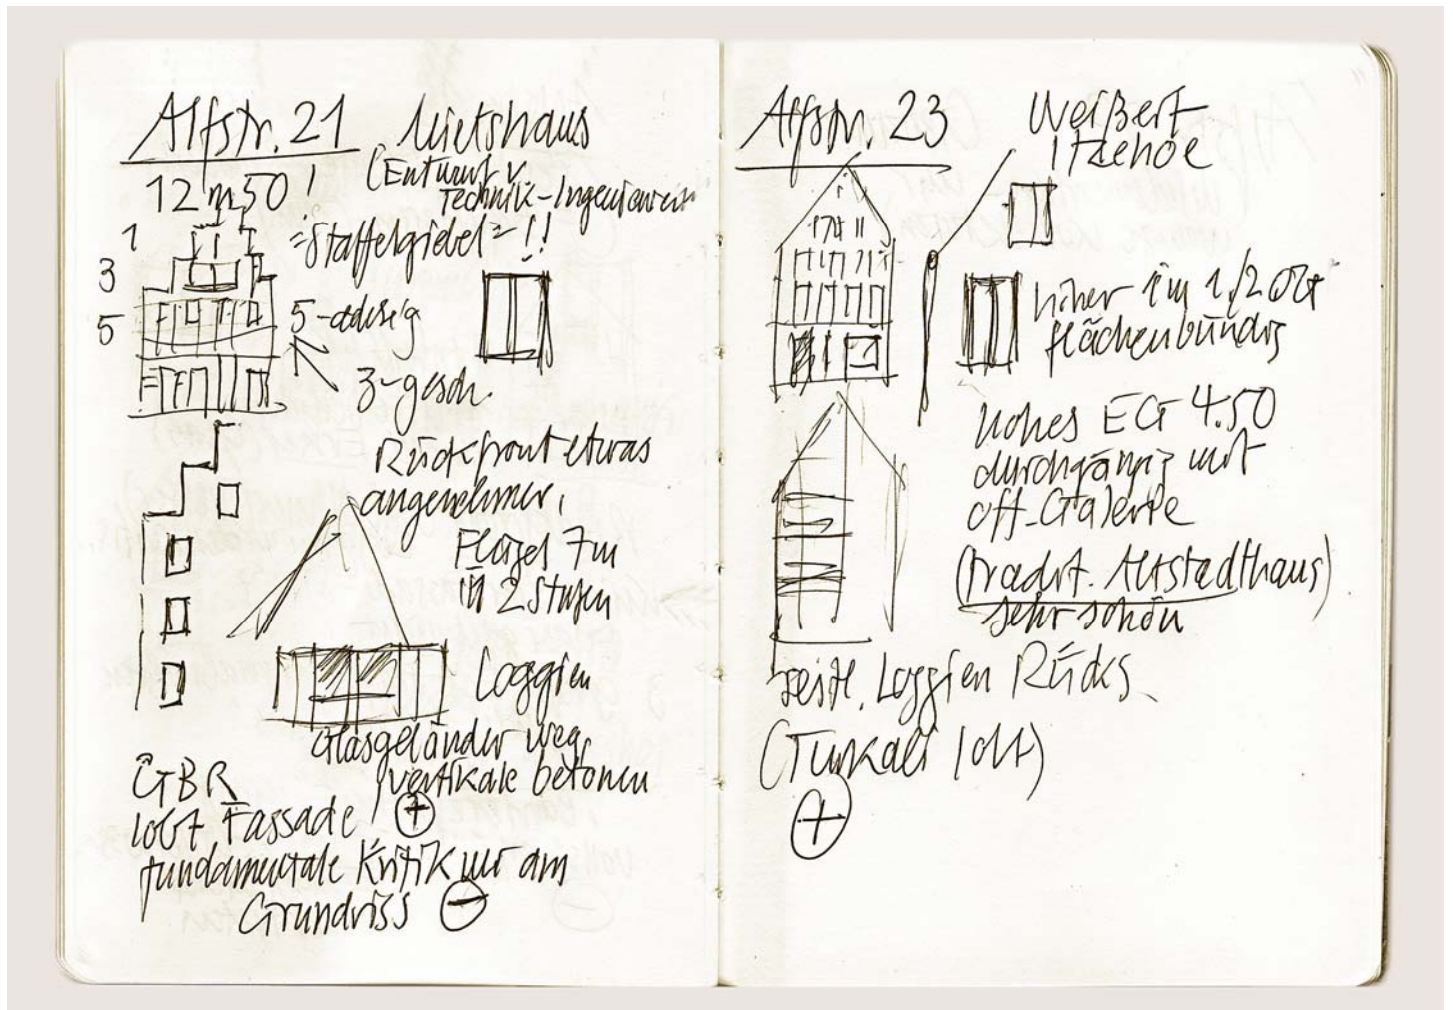 Alfstr. 21
Mietshaus
12 m 50 !
(Entwurf v
Technik-Ingenieurein
=Staffelgiebel=!!
1
3
5
5-achsig
3-gesch.
Rückfront etwas
angenehmer,
Flügel 7m
in 2 Stufen
Loggien
Glasgeländer weg,
vertikale betonen
GBR
lobt Fassade (+)
fundamentale Kritik nur am
Grundriss (−)
Alfstr. 23
Weißert
Itzehoe
höher im 1./2 OG
flächenbündig
hohes EG 4.50
durchgängig mit
off-Galerie
(tradit. Altstadthaus)
sehr schön
seitl. Loggien Rücks.
(Turkali lobt)
(+)